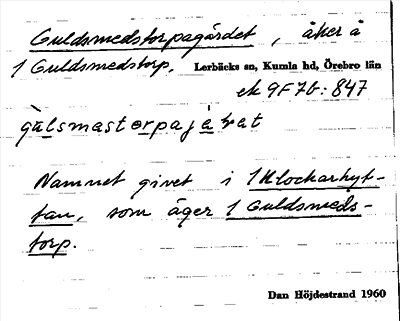 Guldsmedstorpagärdet, åker å
1 Guldsmedstorp. Lerbäcks sn, Kumla hd, Örebro län
ek 9F7b:847
Namnet givet i 1 Klockarhyt-
tan, som äger 1 Guldsmeds-
torp.
Dan Höjdestrand 1960